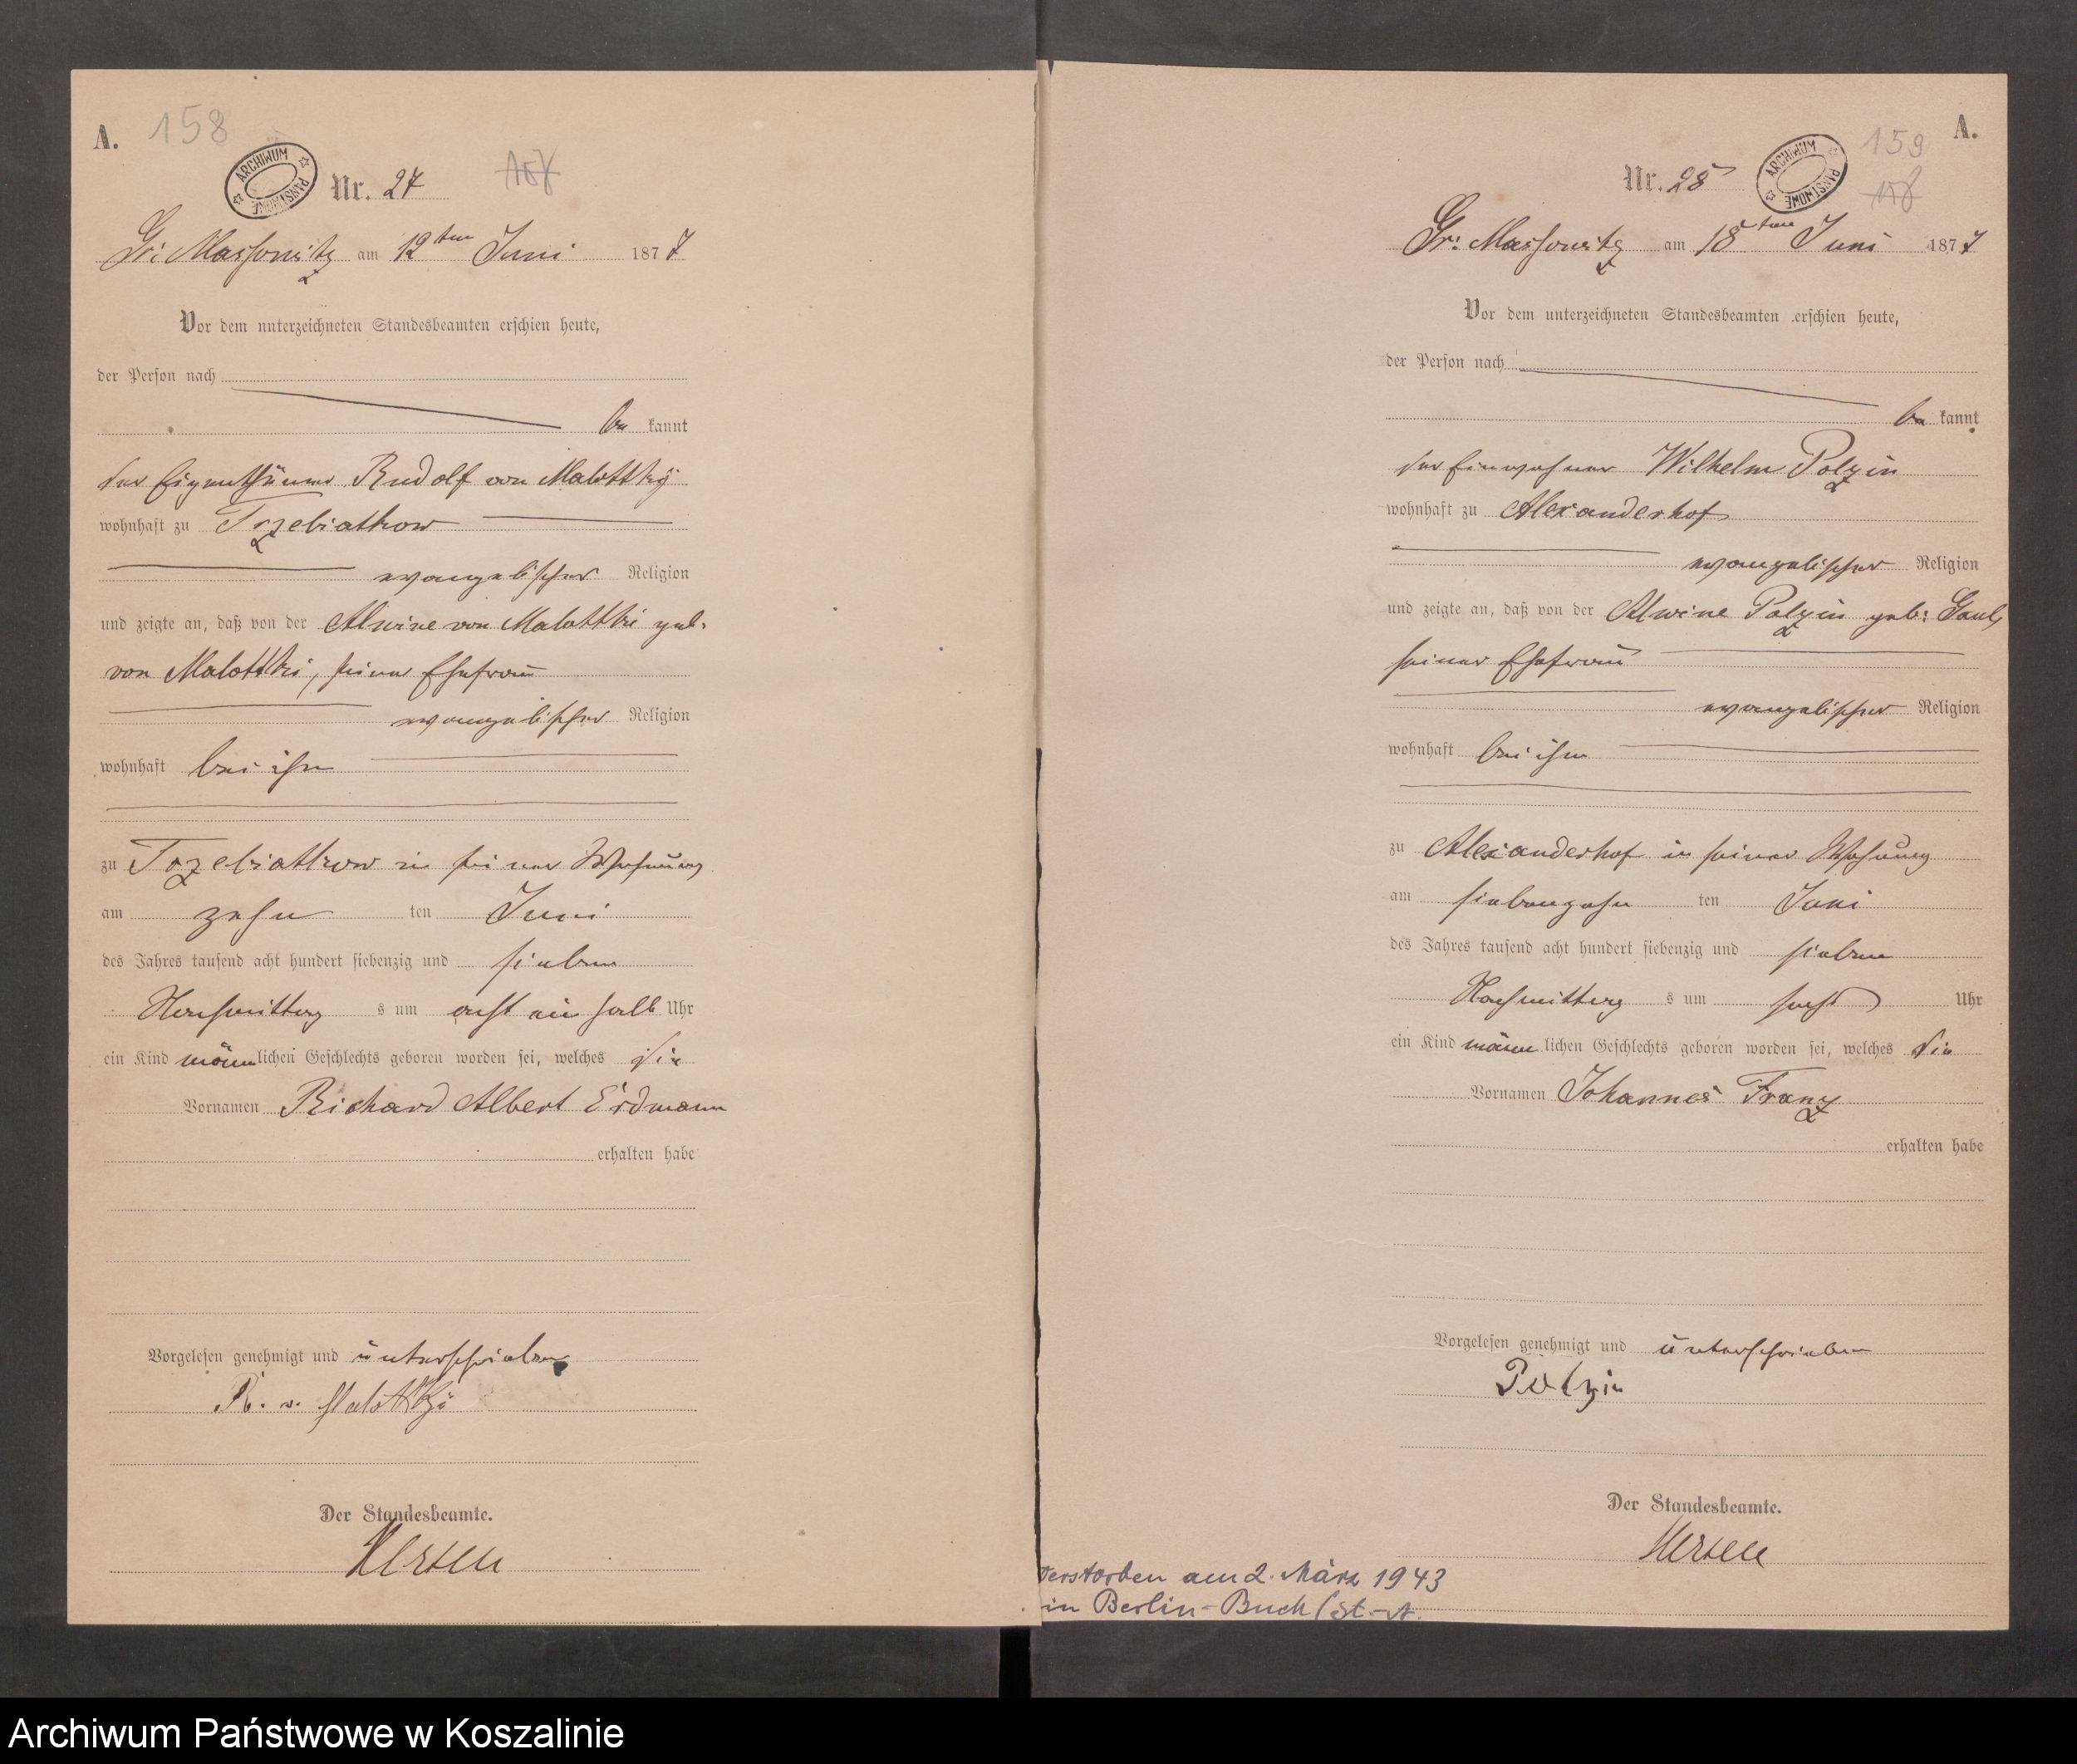 A. 158
ARCHIWUM PAŃSTWOWE
Nr. 27
Gr: Massowitz am 12ten Juni 1877
Vor dem unterzeichneten Standesbeamten erschien heute,
der Person nach
be kannt
der Eigenthümer Rudolf von Malottky
wohnhaft zu Trzebiatkow
evangelischer Religion
und zeigte an, daß von der Alwine von Malottki geb.
von Malottki, seiner Ehefrau
evangelischer Religion
wohnhaft bei ihm
zu Trzebiatkow in seiner Wohnung
am zehn ten Juni
des Jahres tausend acht hundert siebenzig und sieben
Nachmittag s um acht ein halb Uhr
ein Kind männlichen Geschlechts geboren worden sei, welches die
Vornamen Richard Albert Erdmann
erhalten habe
Vorgelesen genehmigt und unterschrieben
R. v. Malottki
Der Standesbeamte.
A.
159
ARCHIWUM PAŃSTWOWE
Nr. 28
Gr: Massowitz am 18ten Juni 1877
Vor dem unterzeichneten Standesbeamten erschien heute,
der Person nach
be kannt
der Einwohner Wilhelm Polzin
wohnhaft zu Alexanderhof
evangelischer Religion
und zeigte an, daß von der Alwine Polzin geb: Gaul,
seiner Ehefrau
evangelischer Religion
wohnhaft bei ihm
zu Alexanderhof in seiner Wohnung
am siebenzehn ten Juni
des Jahres tausend acht hundert siebenzig und sieben
Nachmittag s um sechs Uhr
ein Kind männlichen Geschlechts geboren worden sei, welches die
Vornamen Johannes Franz
erhalten habe
Vorgelesen genehmigt und unterschrieben
Polzin
Der Standesbeamte.
verstorben am 2. März 1943
in Berlin-Buch (St.-A.
Archiwum Państwowe w Koszalinie